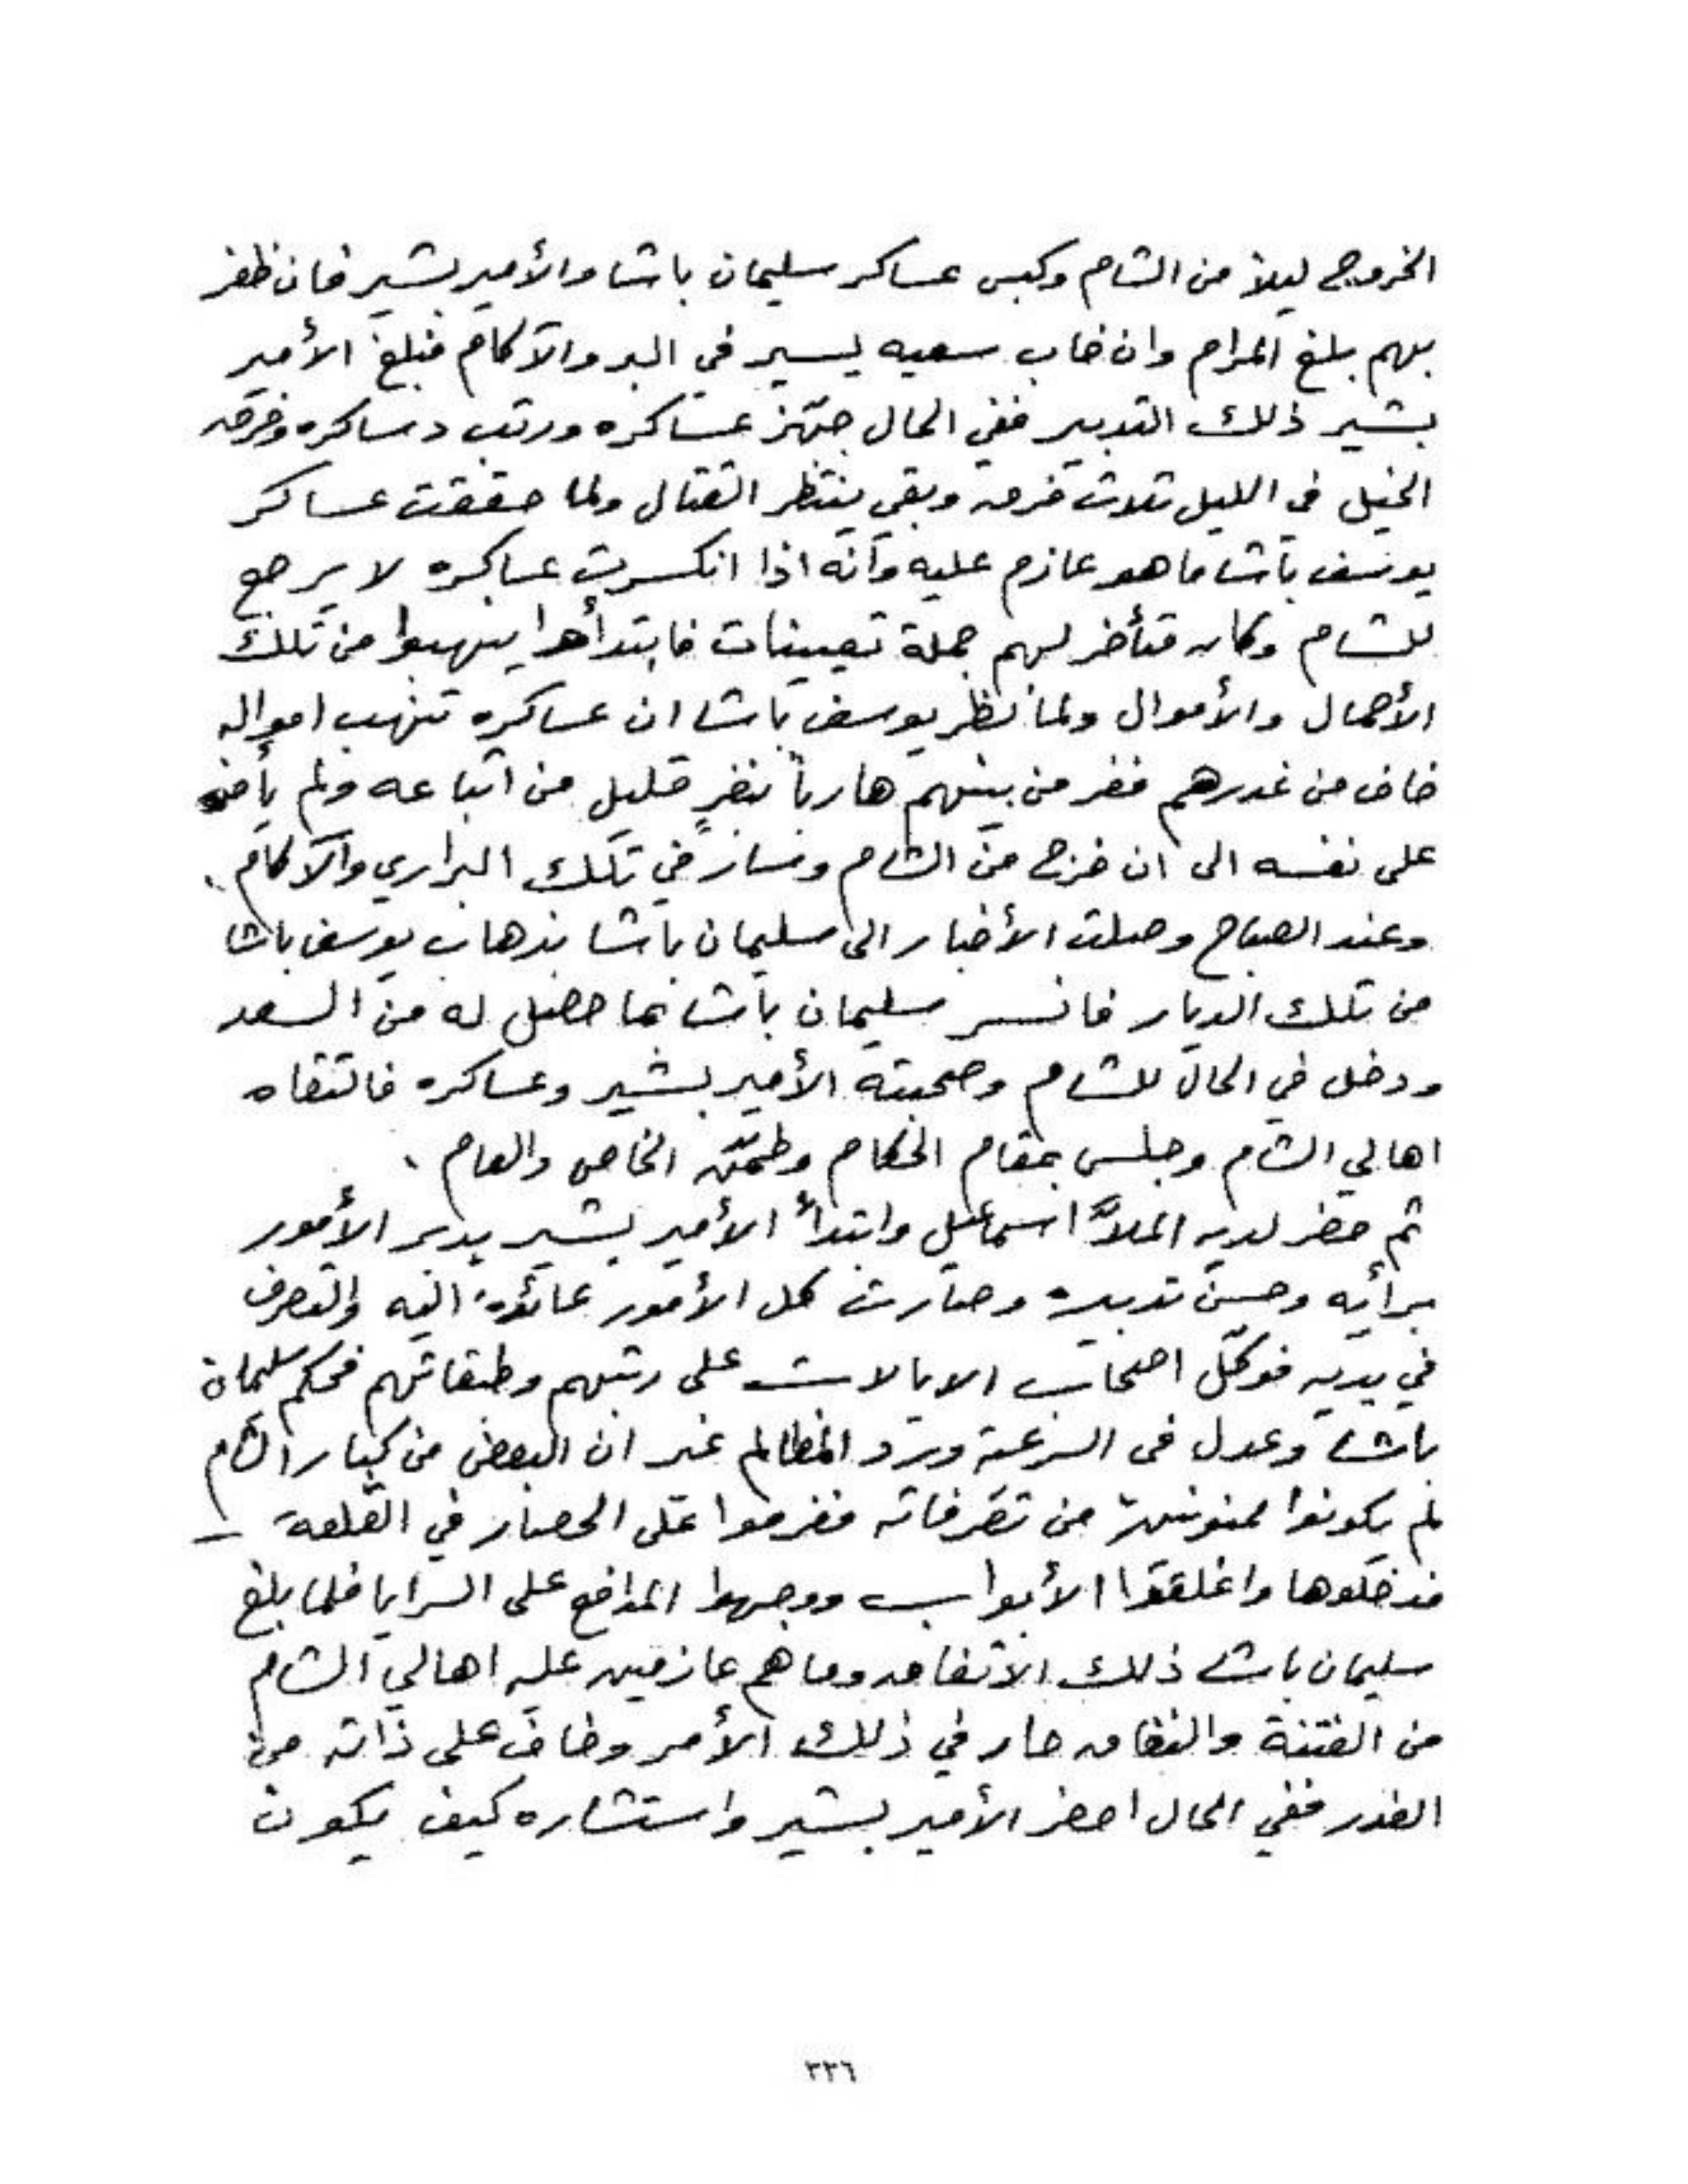 الخروج ليلاً من الشام وكبس عساكر سليمان باشا والأمير بشير فان ظفر
بهم بلغ المرام وان خاب سعيه يسير في البر والآكام فبلغ الأمير
بشير ذلك التدبير ففي الحال جهّز عساكره ورتب دساكره وفرق
الخيل في الليل ثلاث فرق وبقي ينتظر القتال ولما حققت عساكر
يوسف باشا ما هو عازم عليه وأنه اذا انكسرت عساكره لا يرجع
للشام وكان متأخر لهم جملة تعيينات فابتدأوا ينهبوا من تلك
الأحمال والأموال ولما نظر يوسف باشا ان عساكره تنهب امواله
خاف من غدرهم ففر من بينهم هارباً بنفرٍ قليل من اتباعه ولم يأمن
على نفسه الى ان خرج من الشام وسار في تلك البراري والآكام.
وعند الصباح وصلت الأخبار الى سليمان باشا بذهاب يوسف باشا
من تلك الديار فانسر سليمان باشا بما حصل له من السعد
ودخل في الحال للشام وصحبته الأمير بشير وعساكره فالتقاه
اهالي الشام وجلس بمقام الحكام وطمّن الخاص والعام.
ثم حضر لديه الملاّ اسماعيل وابتدأ الأمير بشير يدبر الأمور
برأيه وحسن تدبيره وصارت كل الأمور عائدة اليه والتصرف
في يديه فوكّل اصحاب الايالات على رتبهم وطبقاتهم فحكم سليمان
باشا وعدل في الرعية ورد المظالم غير ان البعض من كبار الشام
لم يكونوا ممنونين من تصرفاته فعزموا على الحصار في القلعة -
فدخلوها واغلقوا الأبواب ووجهوا المدافع على السرايا فلما بلغ
سليمان باشا ذلك الاتفاق وما هم عازمين عليه اهالي الشام
من الفتنة والنفاق حار في ذلك الأمر وخاف على ذاته من
الغدر ففي الحال احضر الأمير بشير واستشاره كيف يكون
٣٣٦